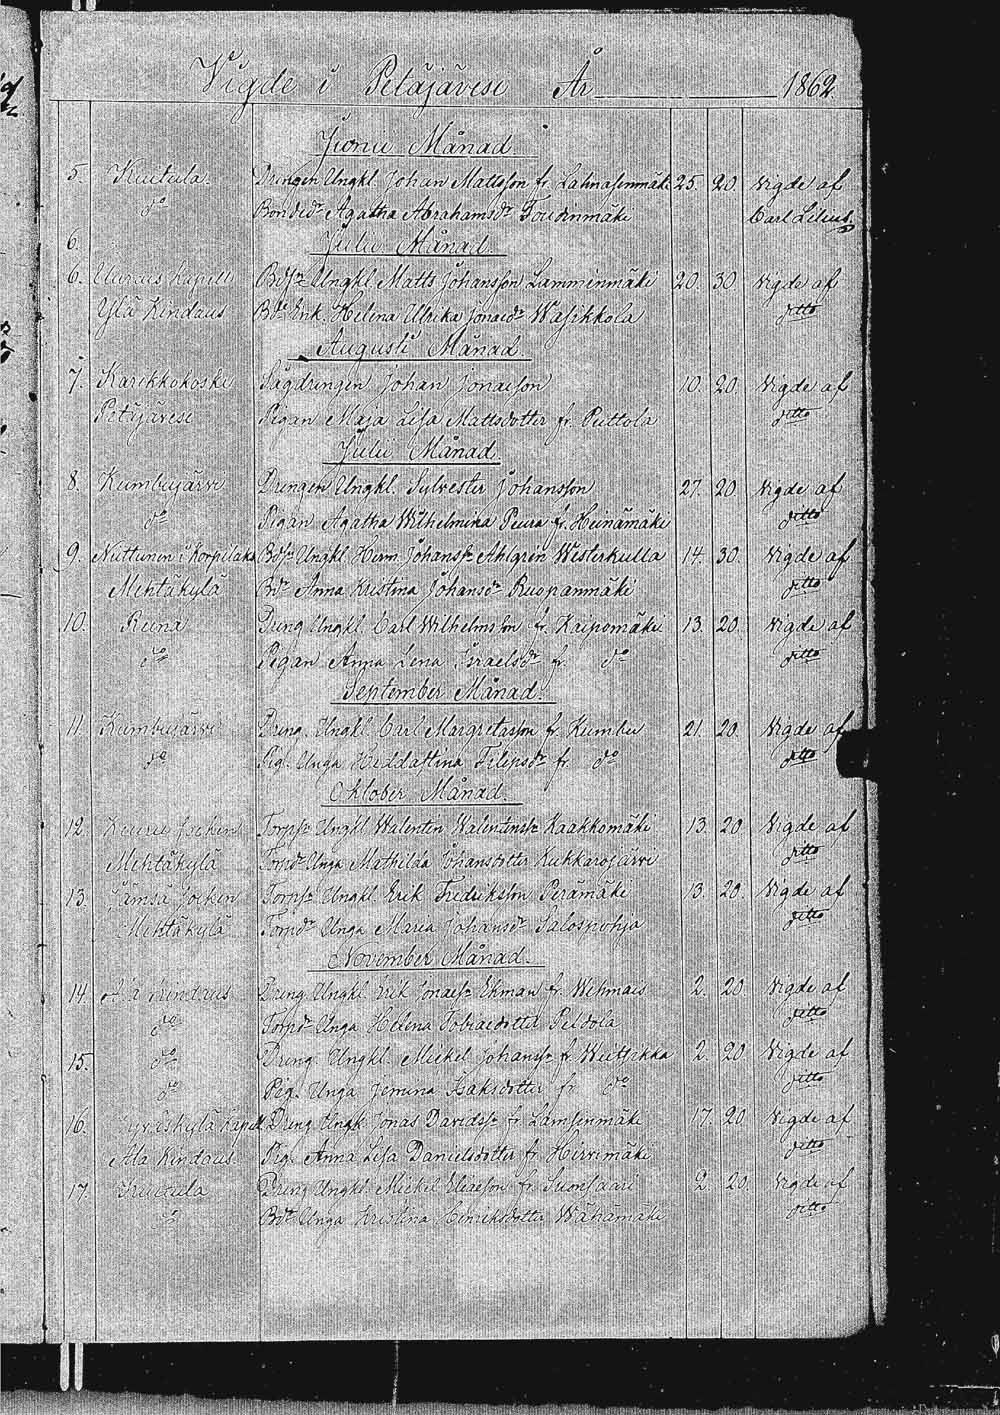 Vigde i Petäjävesi År 1862.
Junii Månad
5. Kuitula. Drengen Ungkl. Johan Mattsson fr. Lahnasenmäki 25. 20 Vigde af
do Bondedr Agatha Abrahamsdr Toudinmäki Carl Lilius.
6. Julii Månad.
6. Kapell Bdsn Ungkl. Matts Johansson Lamminmäki 20. 30 Vigde af
Ylä Kindaus Bdr Enk. Helena Ulrika Jonaedr Wäsikkola ditto
Augusti Månad.
7. Karikkokoski Sågdrengen Johan Jonaesson 10. 20 Vigde af
Petäjävesi Pigan Maja Lisa Mattsdotter fr. Puttola ditto
Julii Månad.
8. Kumbujärvi Drengen Ungkl. Sylvester Johansson 27. 20 Vigde af
do Pigan Agatha Wilhelmina Peura fr. Heinämäki ditto
9. Niittunen i Korpilaks Bdsn Ungkl. Herm. Johanssn Ahlgren Westerkulla 14. 30. Vigde af
Mehtäkylä Bdr Anna Kristina Johansdr Ruopanmäki ditto
10. Reina Dreng Ungkl. Carl Wilhelmsson fr. Kaipomäki 13. 20. Vigde af
do Pigan Anna Lena Israelsdr fr. do ditto
September Månad.
11. Kumbujärvi Dreng. Ungkl. Carl Margretasson fr. Kumbu 21. 20. Vigde af
do Pig. Unga Heddastina Filipsdr fr. do ditto
Oktober Månad.
12. Kuure Jockens Torpsn Ungkl Walentin Walentinssn Kaakkomäki 13. 20. Vigde af
Mehtäkylä Torpdr Unga Mathilda Johansdotter Kukkarojärvi ditto
13. Jämsä Jocken Torpsn Ungkl. Erik Fredriksson Perämäki 13. 20. Vigde af
Mehtäkylä Torpdr Unga Maria Johansdr Salospohja ditto
November Månad.
14. Ala Kindaus Dreng Ungkl. Erik Jonaesn Ekman fr. Wehmais 2. 20. Vigde af
do Torpdr Unga Helena Tobiaedotter Peldola ditto
15. do Dreng. Ungkl. Mickel Johanssn fr. Wiitsikka 2. 20 Vigde af
do Pig. Unga Jemina Isaksdotter fr. do ditto
16. Kapell Dreng Ungk. Jonas Davidssn fr. Lamsenmäki 17. 20 Vigde af
Ala Kindaus. Pig. Anna Lisa Danielsdotter fr. Hirvimäki ditto
17. Kuitula Dreng Ungkl. Mickel Eliaesson fr. Suonsaari 2. 20. Vigde af
do Bdr Unga Kristina Henriksdotter Wähämäki ditto